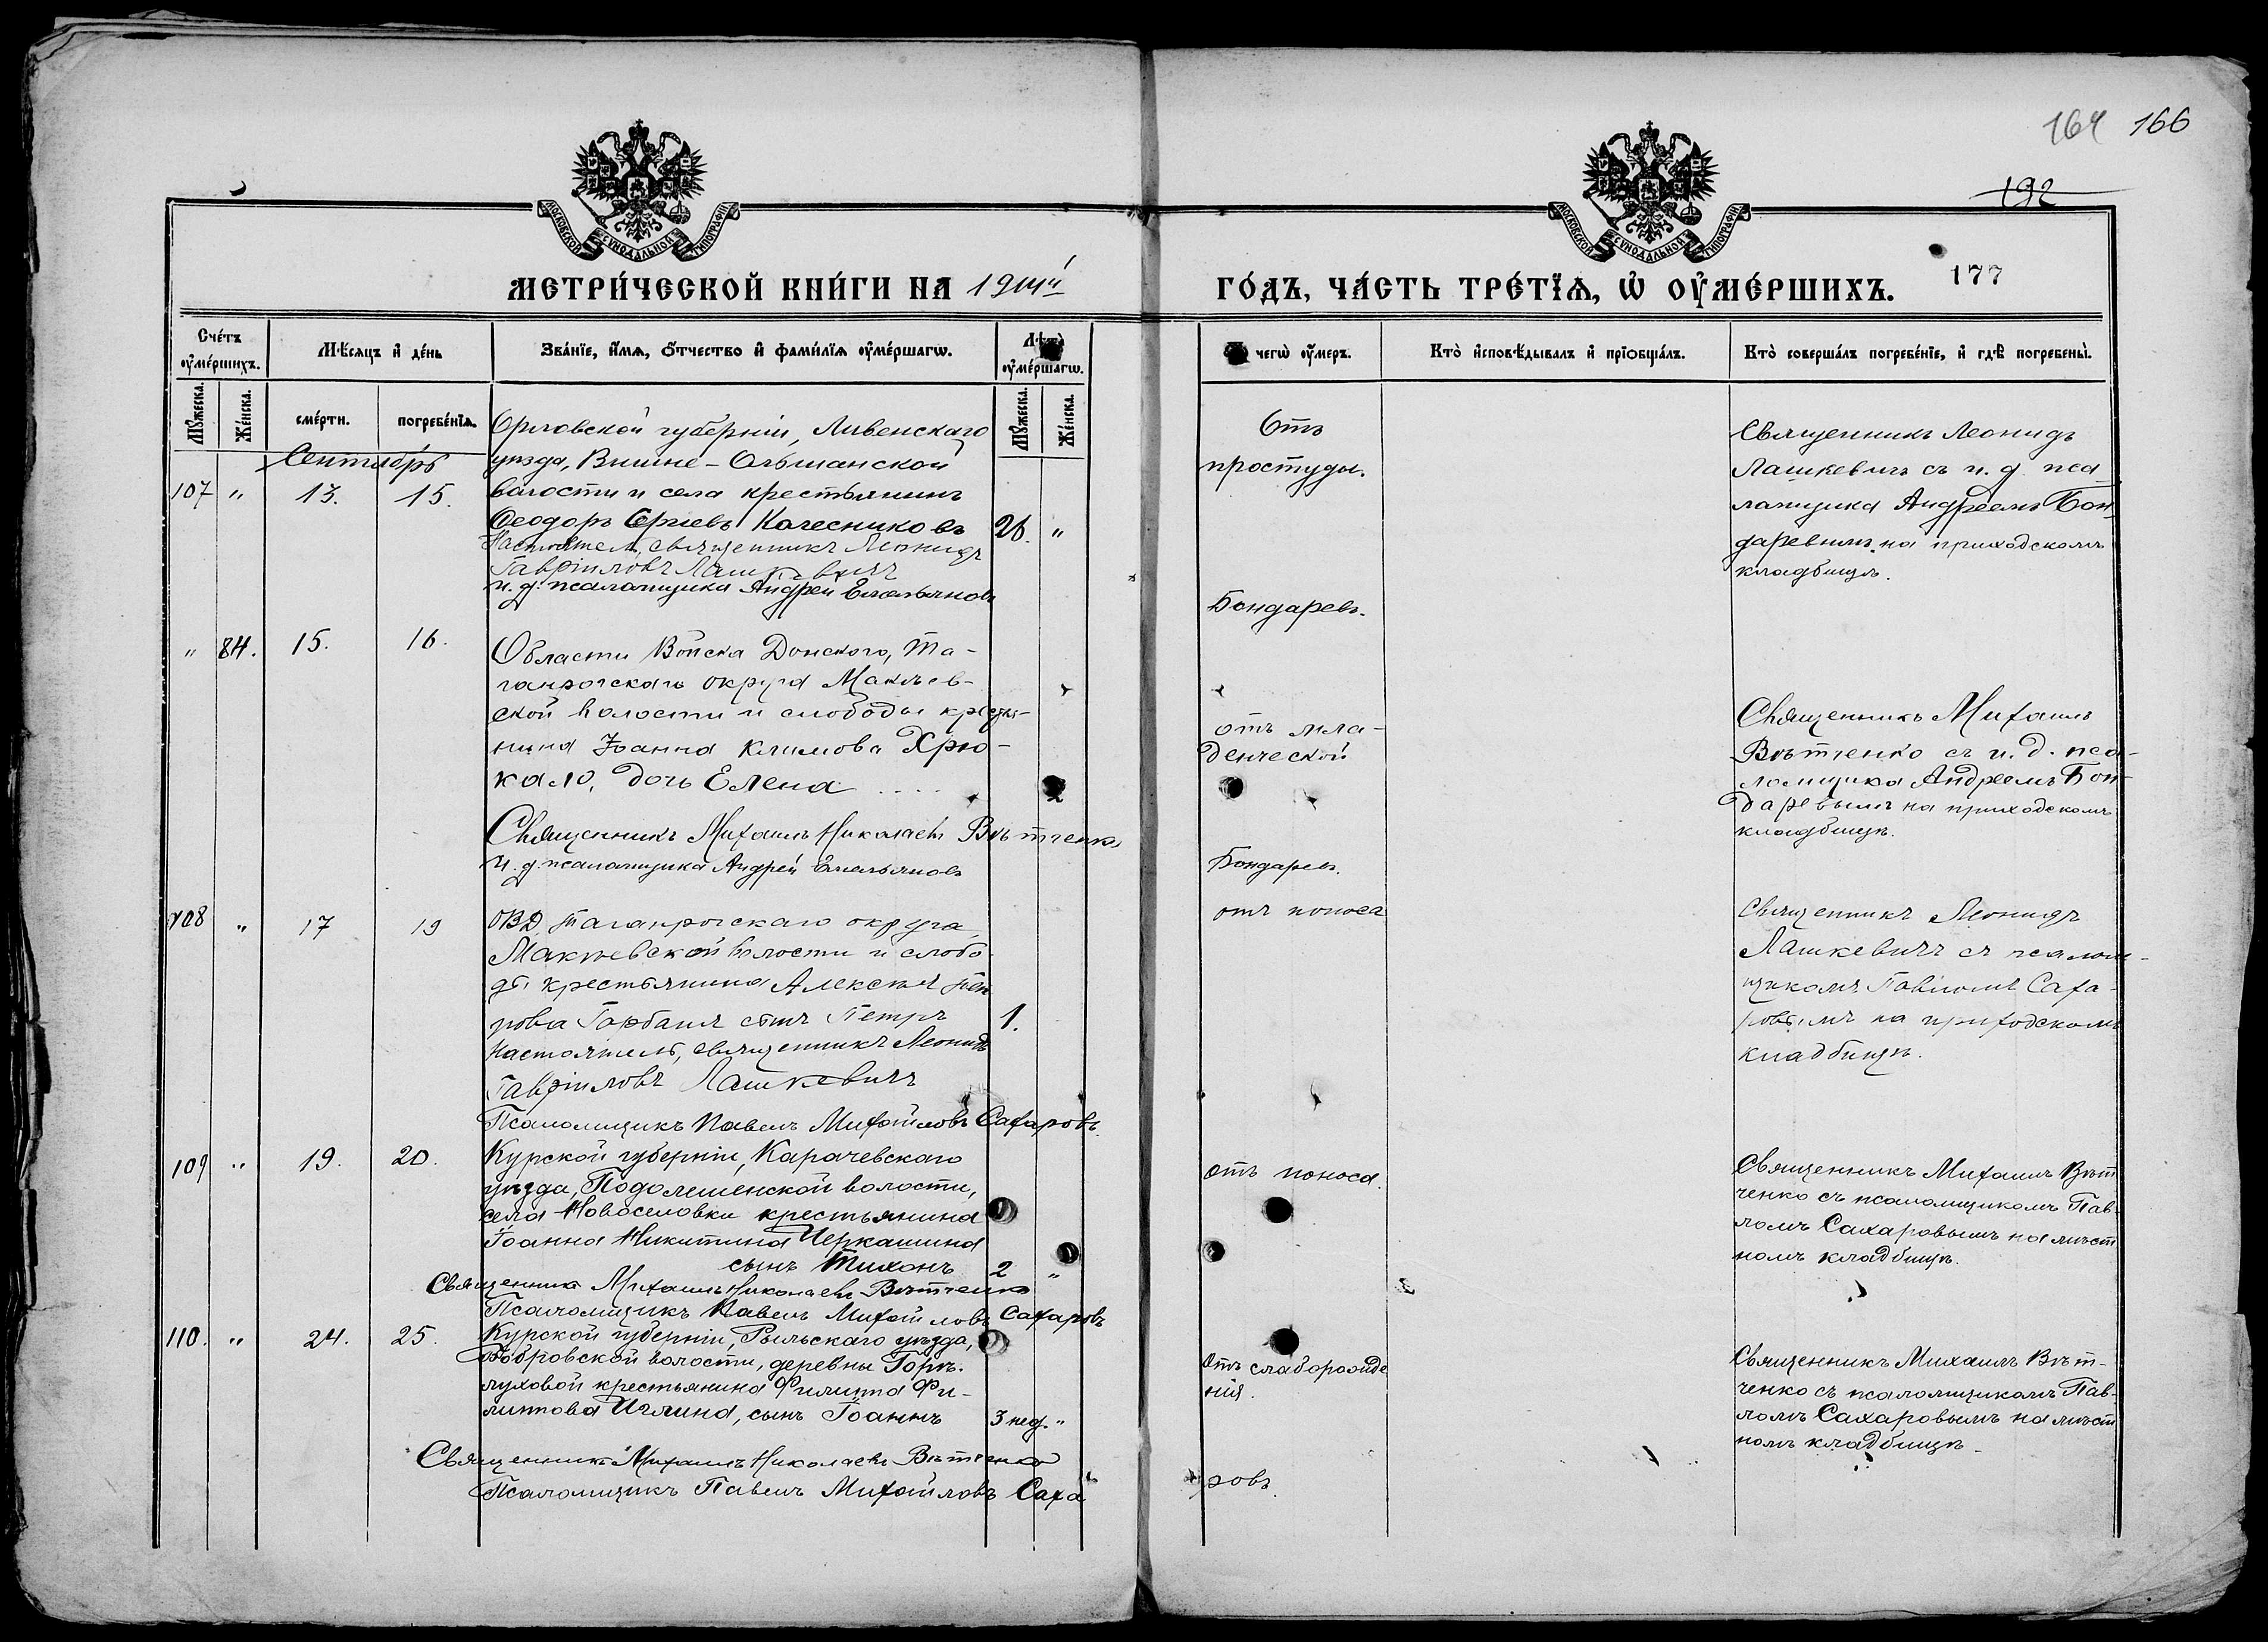 164 166
192
МОСКОВСКОЙ СѴНОДАЛЬНОЙ ТИПОГРАФІИ
МОСКОВСКОЙ СѴНОДАЛЬНОЙ ТИПОГРАФІИ
МЕТРИ́ЧЕСКОЙ КНИ́ГИ НА 1914й
ГО́ДЪ, ЧА́СТЬ ТРЕ́ТЇѦ, Ѡ҆ ОУ҆МЕ́РШИХЪ. 177
Сче́тъ оу҆ме́ршихъ.
Мѣ́сяцъ и҆ де́нь
Зва́нїе, и҆́мѧ, ѻ҆́тчество и҆ фами́лїѧ оу҆ме́ршагѡ.
Лѣта̀ оу҆ме́ршагѡ.
чегѡ̀ оу҆́меръ.
Кто̀ и҆сповѣ́дывалъ и҆ прїобща́лъ.
Кто̀ соверша́лъ погребе́нїе, и҆ гдѣ̀ погребены̀.
Мꙋ́жеска. Же́нска. сме́рти. погребе́нїѧ. Мꙋ́жеска. Же́нска.
Сентябрь
107 " 13. 15.
Орловской губерніи, Ливенскаго
уѣзда, Вышне-Ольшанской
волости и села крестьянинъ
Ѳеодоръ Сергіевъ Колесниковъ 26. "
Настоятель, священникъ Леонидъ
Гавріиловъ Лашкевичъ
и. д. псаломщика Андрей Емельяновъ
Отъ
простуды.
Бондаревъ.
Священникъ Леонидъ
Лашкевичъ съ и. д. пса
ломщика Андреемъ Бон
даревымъ на приходскомъ
кладбищѣ.
" 84. 15. 16.
Области Войска Донского, Та-
ганрогскаго округа Макѣев-
ской волости и слободы кресть-
нина Іоанна Климова Хрю-
кало, дочь Елена .... 2
Священникъ Михаилъ Николаевъ Вѣтченко
и. д. псаломщика Андрей Емельяновъ
отъ мла-
денческой
Бондаревъ.
Священникъ Михаилъ
Вѣтченко съ и. д. пса-
ломщика Андреемъ Бон-
даревымъ на приходскомъ
кладбищѣ.
108 " 17 19
ОВД, Таганрогскаго округа,
Макѣевской волости и слобо-
ды крестьянина Алексѣя Пет
рова Горбаня сынъ Петръ 1.
Настоятель, священникъ Леонидъ
Гавріиловъ Лашкевичъ
Псаломщикъ Павелъ Михайловъ Сахаровъ.
отъ поноса
Священникъ Леонидъ
Лашкевичъ съ псалом-
щикомъ Павломъ Саха-
ровымъ на приходскомъ
кладбищѣ.
109 " 19. 20.
Курской губерніи, Карачевскаго
уѣзда, Подолешенской волости,
села Новоселовки крестьянина
Іоанна Никитина Черкашина
сынъ Тихонъ 2 "
Священникъ Михаилъ Николаевъ Вѣтченко
Псаломщикъ Павелъ Михайловъ Сахаровъ
отъ поноса.
Священникъ Михаилъ Вѣт
ченко съ псаломщикомъ Пав-
ломъ Сахаровымъ на мѣст
номъ кладбищѣ.
110. " 24. 25.
Курской губерніи, Рыльскаго уѣзда,
Бобровской волости, деревни
крестьянина Филиппа Фи-
липпова сынъ Іоаннъ 3 нед. "
Священникъ Михаилъ Николаевъ Вѣтченко
Псаломщикъ Павелъ Михайловъ Саха
Отъ слаборожде
нія.
ровъ.
Священникъ Михаилъ Вѣт-
ченко съ псаломщикомъ Пав-
ломъ Сахаровымъ на мѣст
номъ кладбищѣ.